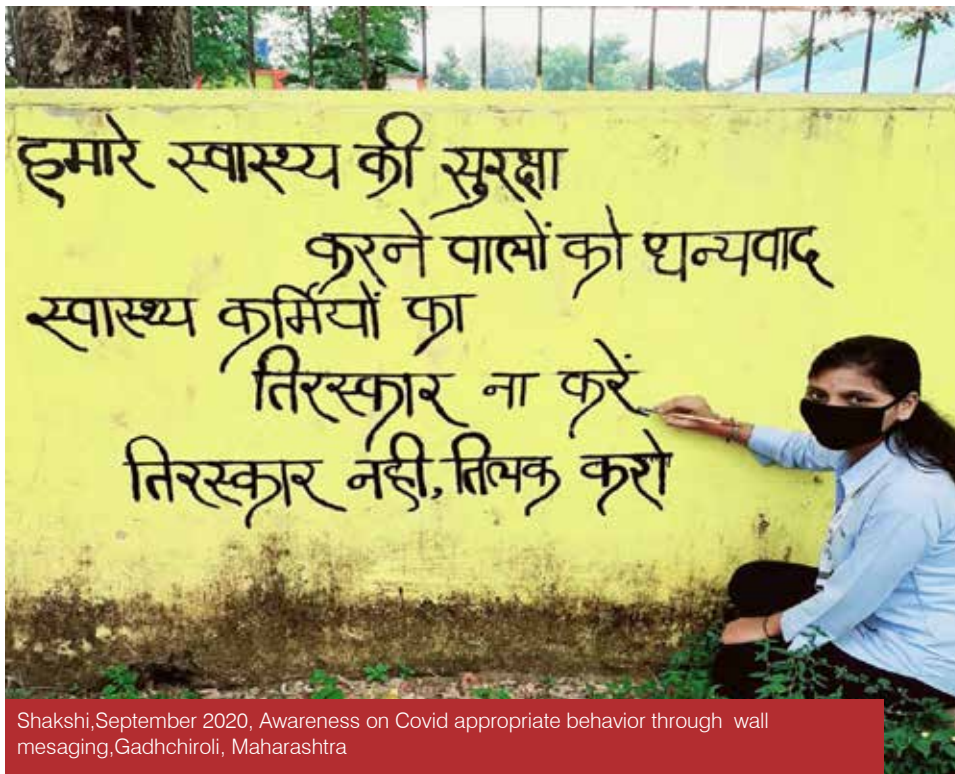 हमारे स्वास्थ्य की सुरक्षा
करने वालों को धन्यवाद
स्वास्थ्य कर्मियों का
तिरस्कार ना करें
तिरस्कार नही, तिलक करो
Shakshi,September 2020, Awareness on Covid appropriate behavior through wall
mesaging,Gadhchiroli, Maharashtra